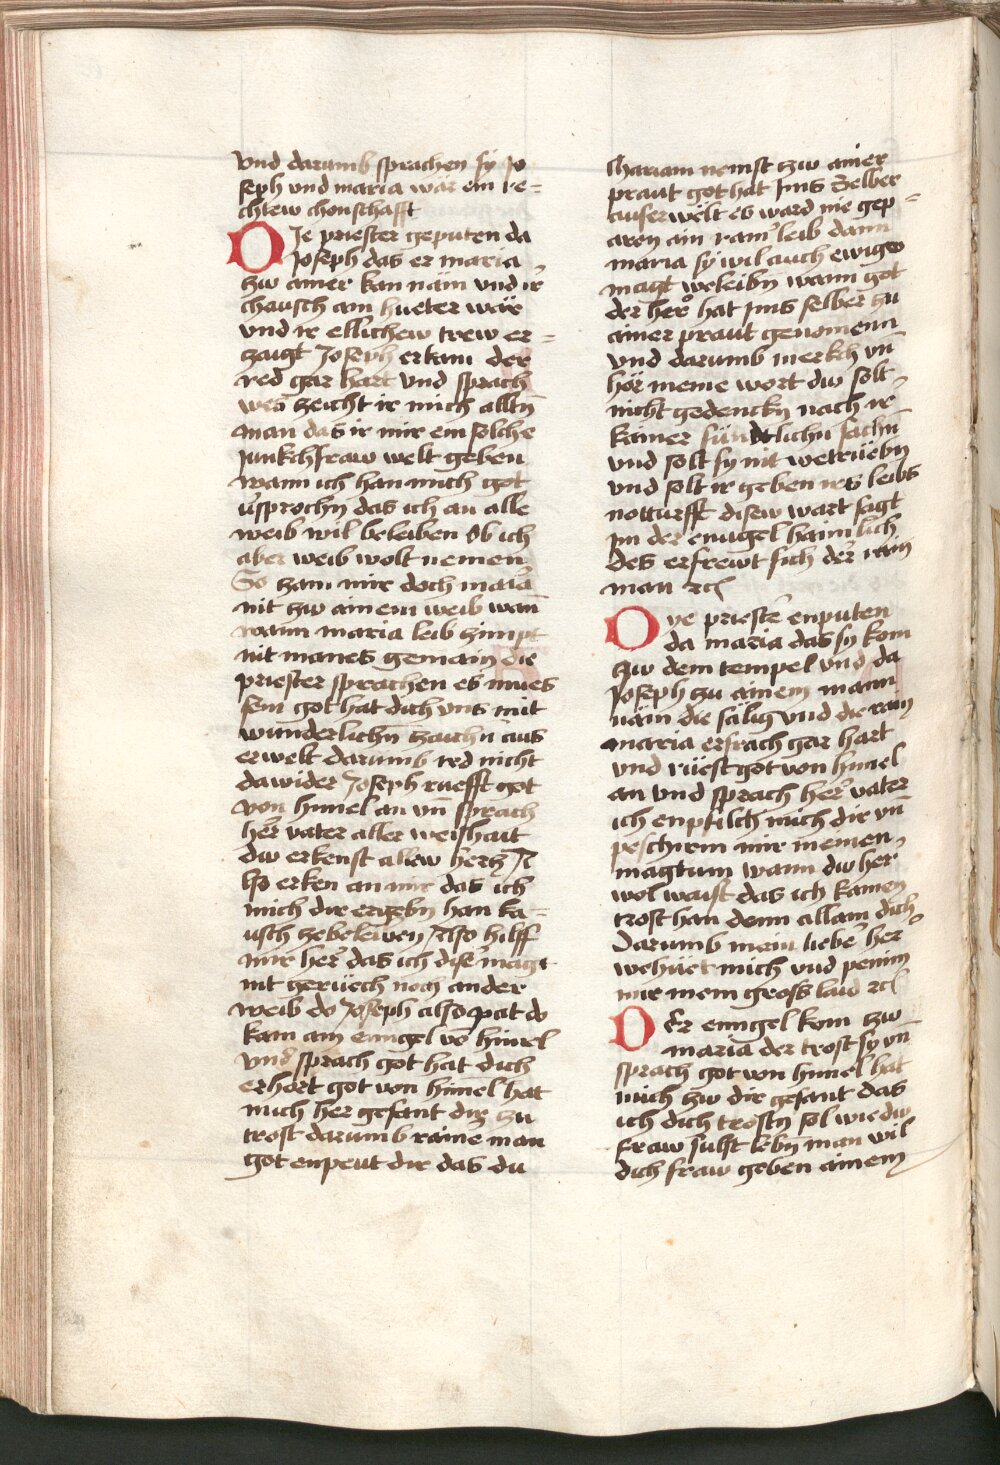 vnd darumb sprachen sy Jo
seph vnd maria war ein re=
chtew chonschafft
DJe priester geputen da
Joseph das er maria
zw ainer kan näm vnd ir
chausch ain hueter wär
vnd ir ellichew trew er=
zaigt Joseph erkam der
red gar hart vnd sprach
wes zeicht ir mich alltn̄
man das ir mir ein solche
junkchfraw welt geben
wann ich han mich got
v̈sprochn̄ das ich an alle
weib wil beleiben Ob ich
aber weib wolt nemen
So zam mir doch maria
nit zw ainem weib wan̄
wann maria leib zimpt
nit manes gemain die
priester sprachen es mues
sein got hat dich vns mit
wunderlichn̄ zaichn̄ aus
erwelt darumb red nicht
dawider Joseph ruefft got
von himel an vn̄ sprach
her̄ vater aller weishait
dw erkenst allew hercz A
lso erken an mir das ich
mich dir ergebn̄ han ka=
usch zebeleiwen Also hilff
mir her̄ das ich diser magt
nit geruech noch ander
weib do Joseph also pat do
kam ain enngel vō himel
vnd sprach got hat dich
erhort got von himel hat
mich her gesant dir zu
trost darumb raine man
got enpeut dir das du
Mariam nemst zw ainer
praut got hat Jms selber
auserwelt es ward nie gep=
oren ain rain̄ leib dann
maria sy wil auch ewige
magt beleibn̄ wann got
der her̄ hat Jms selber zu
ainer praut genomenn
vnd darumb merkch vn̄
hör meine wort dw solt
nicht gedenckn̄ nach ir
kainer sündtlichn̄ sachn̄
vnd solt sy nit wetrüebn̄
vnd solt ir geben irs leibs
notturfft disew wart sagt
im der enngel haimlich
des erfrewt sich der rain
man etc
DYe priester̄ enputen
da maria das sy kom
zw dem tempel vnd da
Joseph zu ainem mann
näm die sälig vnd die rain
maria erschrach gar hart
vnd rüefft got von himel
an vnd sprach her̄ vater
ich enpfilch mich dir vn̄
peschirm mir meinen
magtum wann dw her
wol waist das ich kainen
trost han denn allain dich
Darumb mein lieber̄ her
wehüet mich vnd penim
mir mein gross laid etc
DEr enngel kom zw
maria der trost sy vn̄
sprach got von himel hat
mich zw dir gesant das
ich dich trostn̄ sol wie dw
fraw sulst lebn̄ man wil
dich fraw geben ainem